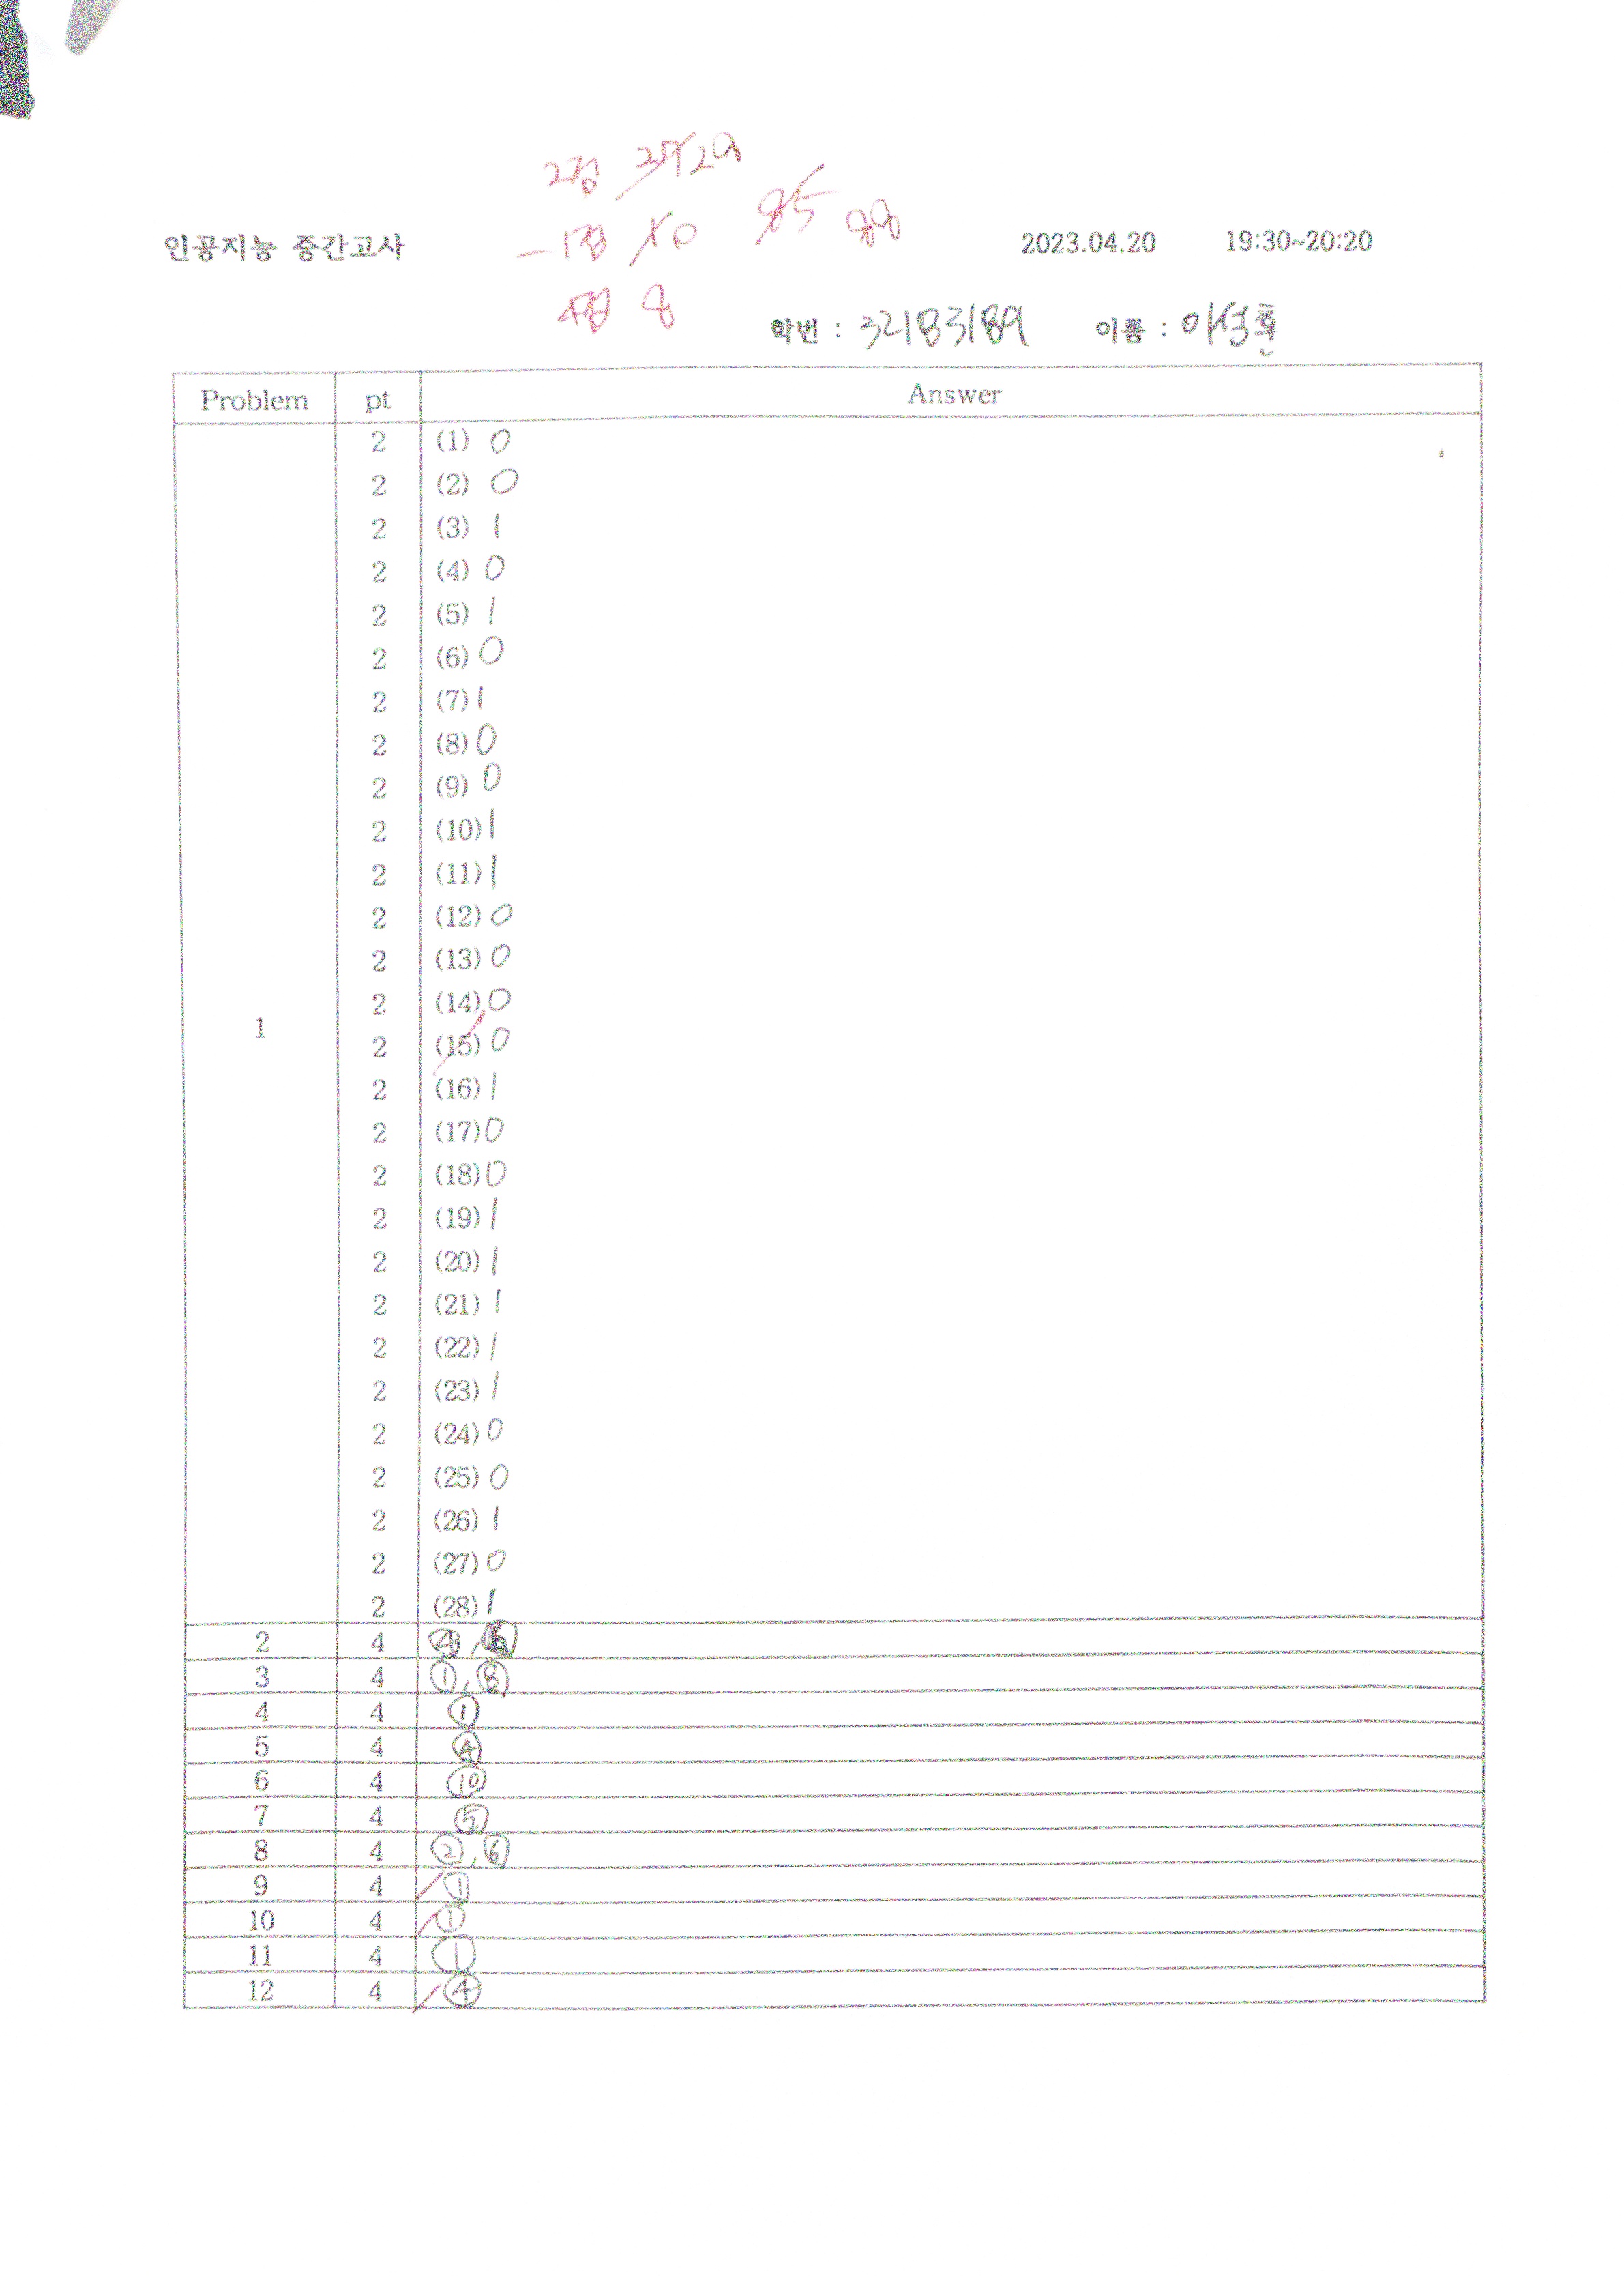 2점 25/29
인공지능 중간고사 -1점 10 85 88 2023.04.20 19:30~20:20
4점 8
학번 : 32183189 이름 :
Problem pt Answer
2 (1) 0
2 (2) 0
2 (3) 1
2 (4) 0
2 (5) 1
2 (6) 0
2 (7) 1
2 (8) 0
2 (9) 0
2 (10) 1
2 (11) 1
2 (12) 0
2 (13) 0
2 (14) 0
1
2 (15) 0
2 (16) 1
2 (17) 0
2 (18) 0
2 (19) 1
2 (20) 1
2 (21) 1
2 (22) 1
2 (23) 1
2 (24) 0
2 (25) 0
2 (26) 1
2 (27) 0
2 (28) 1
2 4 ④, ⑥
3 4 ①, ⑧
4 4 ①
5 4 ④
6 4 ⑩
7 4 ⑤
8 4 ②, ⑥
9 4 ①
10 4 ①
11 4 ①
12 4 ④